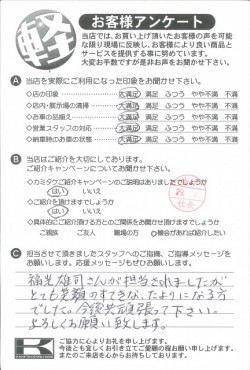 軽
お客様アンケート
当店では、お買い上げ頂いたお客様の声を可能
な限り現場に反映し、お客様により良い商品と
サービスを提供する事に努めています。
大変お手数ですが是非お声をお聞かせ下さい。
A 当店を実際にご利用になった印象をお聞かせ下さい。
◇店の印象 大満足 満足 ふつう やや不満 不満
◇店内・展示場の清掃 大満足 満足 ふつう やや不満 不満
◇お車の品揃え 大満足 満足 ふつう やや不満 不満
◇営業スタッフの対応 大満足 満足 ふつう やや不満 不満
◇納車時のお車の状態 大満足 満足 ふつう やや不満 不満
B 当店はご紹介を大切にしております。
ご紹介キャンペーンについてお聞かせ下さい。
◇カミタケご紹介キャンペーンのご説明はありましたでしょうか
はい いいえ
◇ご紹介を頂けますでしょうか
はい いいえ
◇具体的にご紹介頂ける方とのご関係をお聞かせ頂けますでしょうか
ご親族 ご友人 職場の方 機会があれば紹介したい
社長
C 担当させて頂きましたスタッフへのご指摘、ご指導メッセージを
お願いします。応援メッセージもぜひお願いします。
福光雄司さんが担当されましたが
とても笑顔のすてきな、たよりになる方
でした。今後共頑張って下さい。
よろしくお願い致します。
K
ご協力に心よりお礼を申し上げます。
今後とも宜しくお引き立てご愛顧の程お願い申し上げます。
またのご来店を心からお待ちしております。